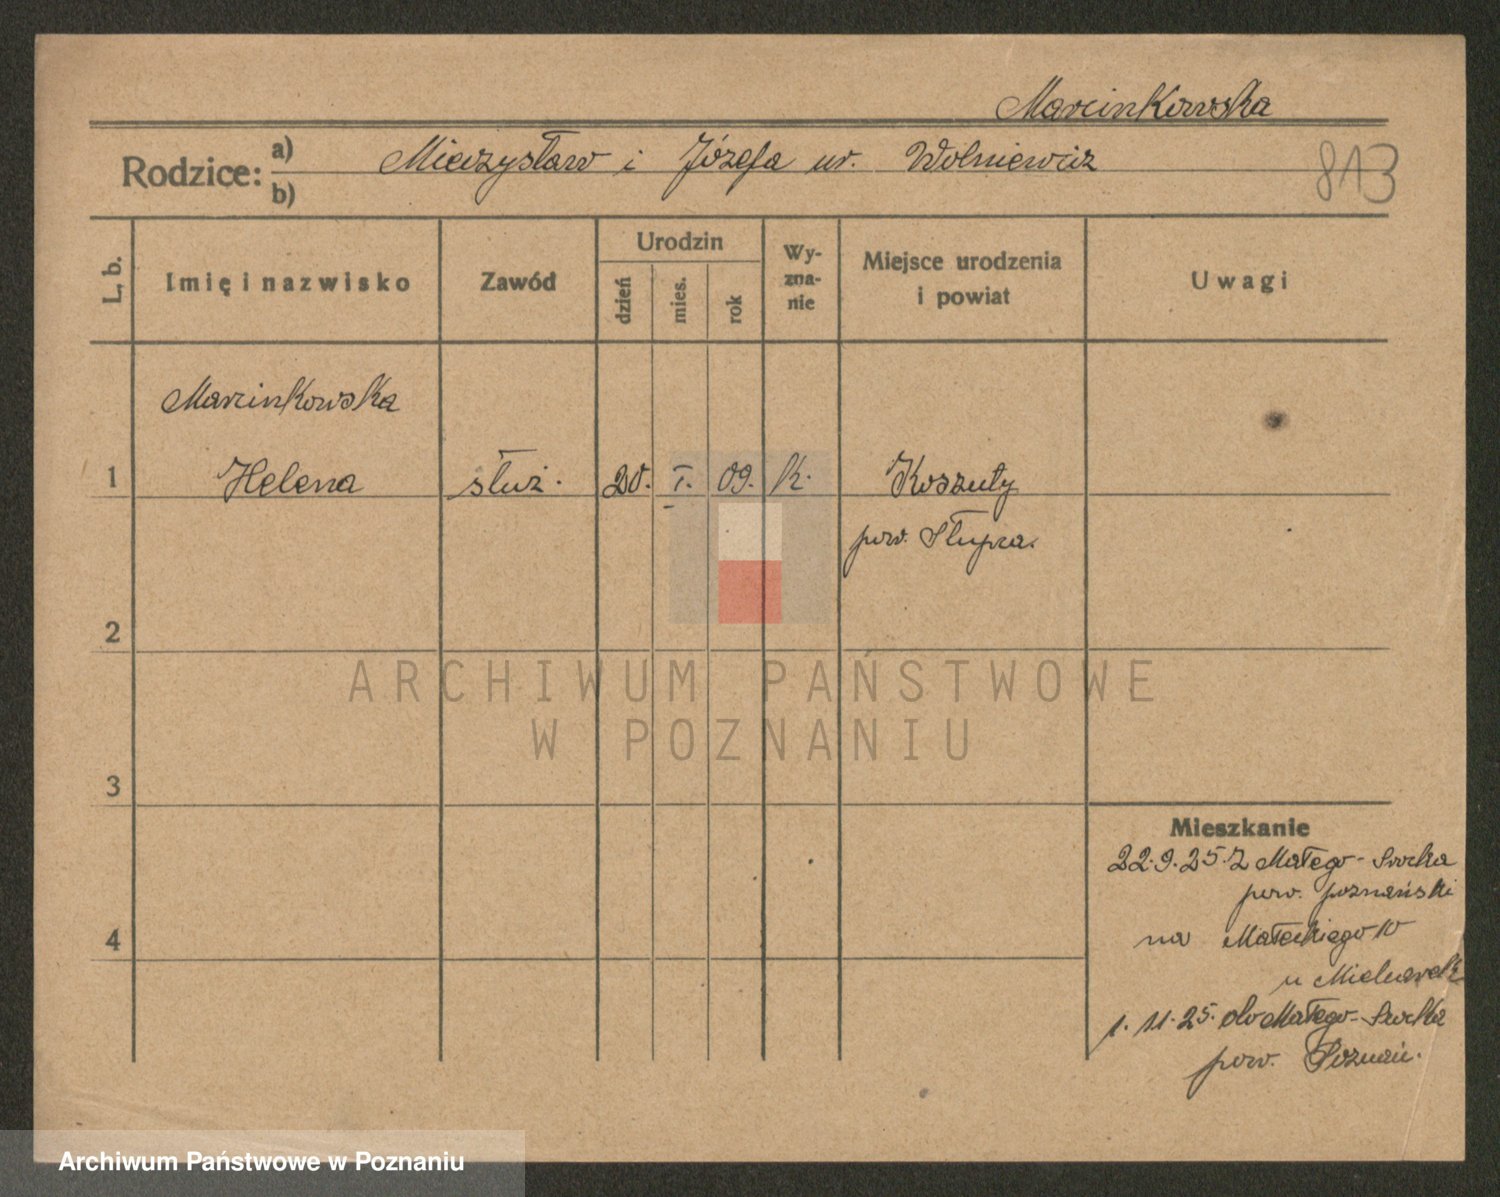 Marcinkowska
Rodzice: a) b) Mieczysław i Józefa ur. Wolniewicz
813
L, b.
Imię i nazwisko
Zawód
Urodzin
dzień
mies.
rok
Wy-
zna-
nie
Miejsce urodzenia
i powiat
Uwagi
Marcinkowska
1 Helena służ. 20. I. 09. k. Koszuty
pow. Słupca.
2
3
4
ARCHIWUM PAŃSTWOWE
W POZNANIU
Mieszkanie
22.9.25. z Małego-
pow. poznański
na Małeckiego 10
u
1.11.25. do Małego-
pow. Poznań.
Archiwum Państwowe w Poznaniu